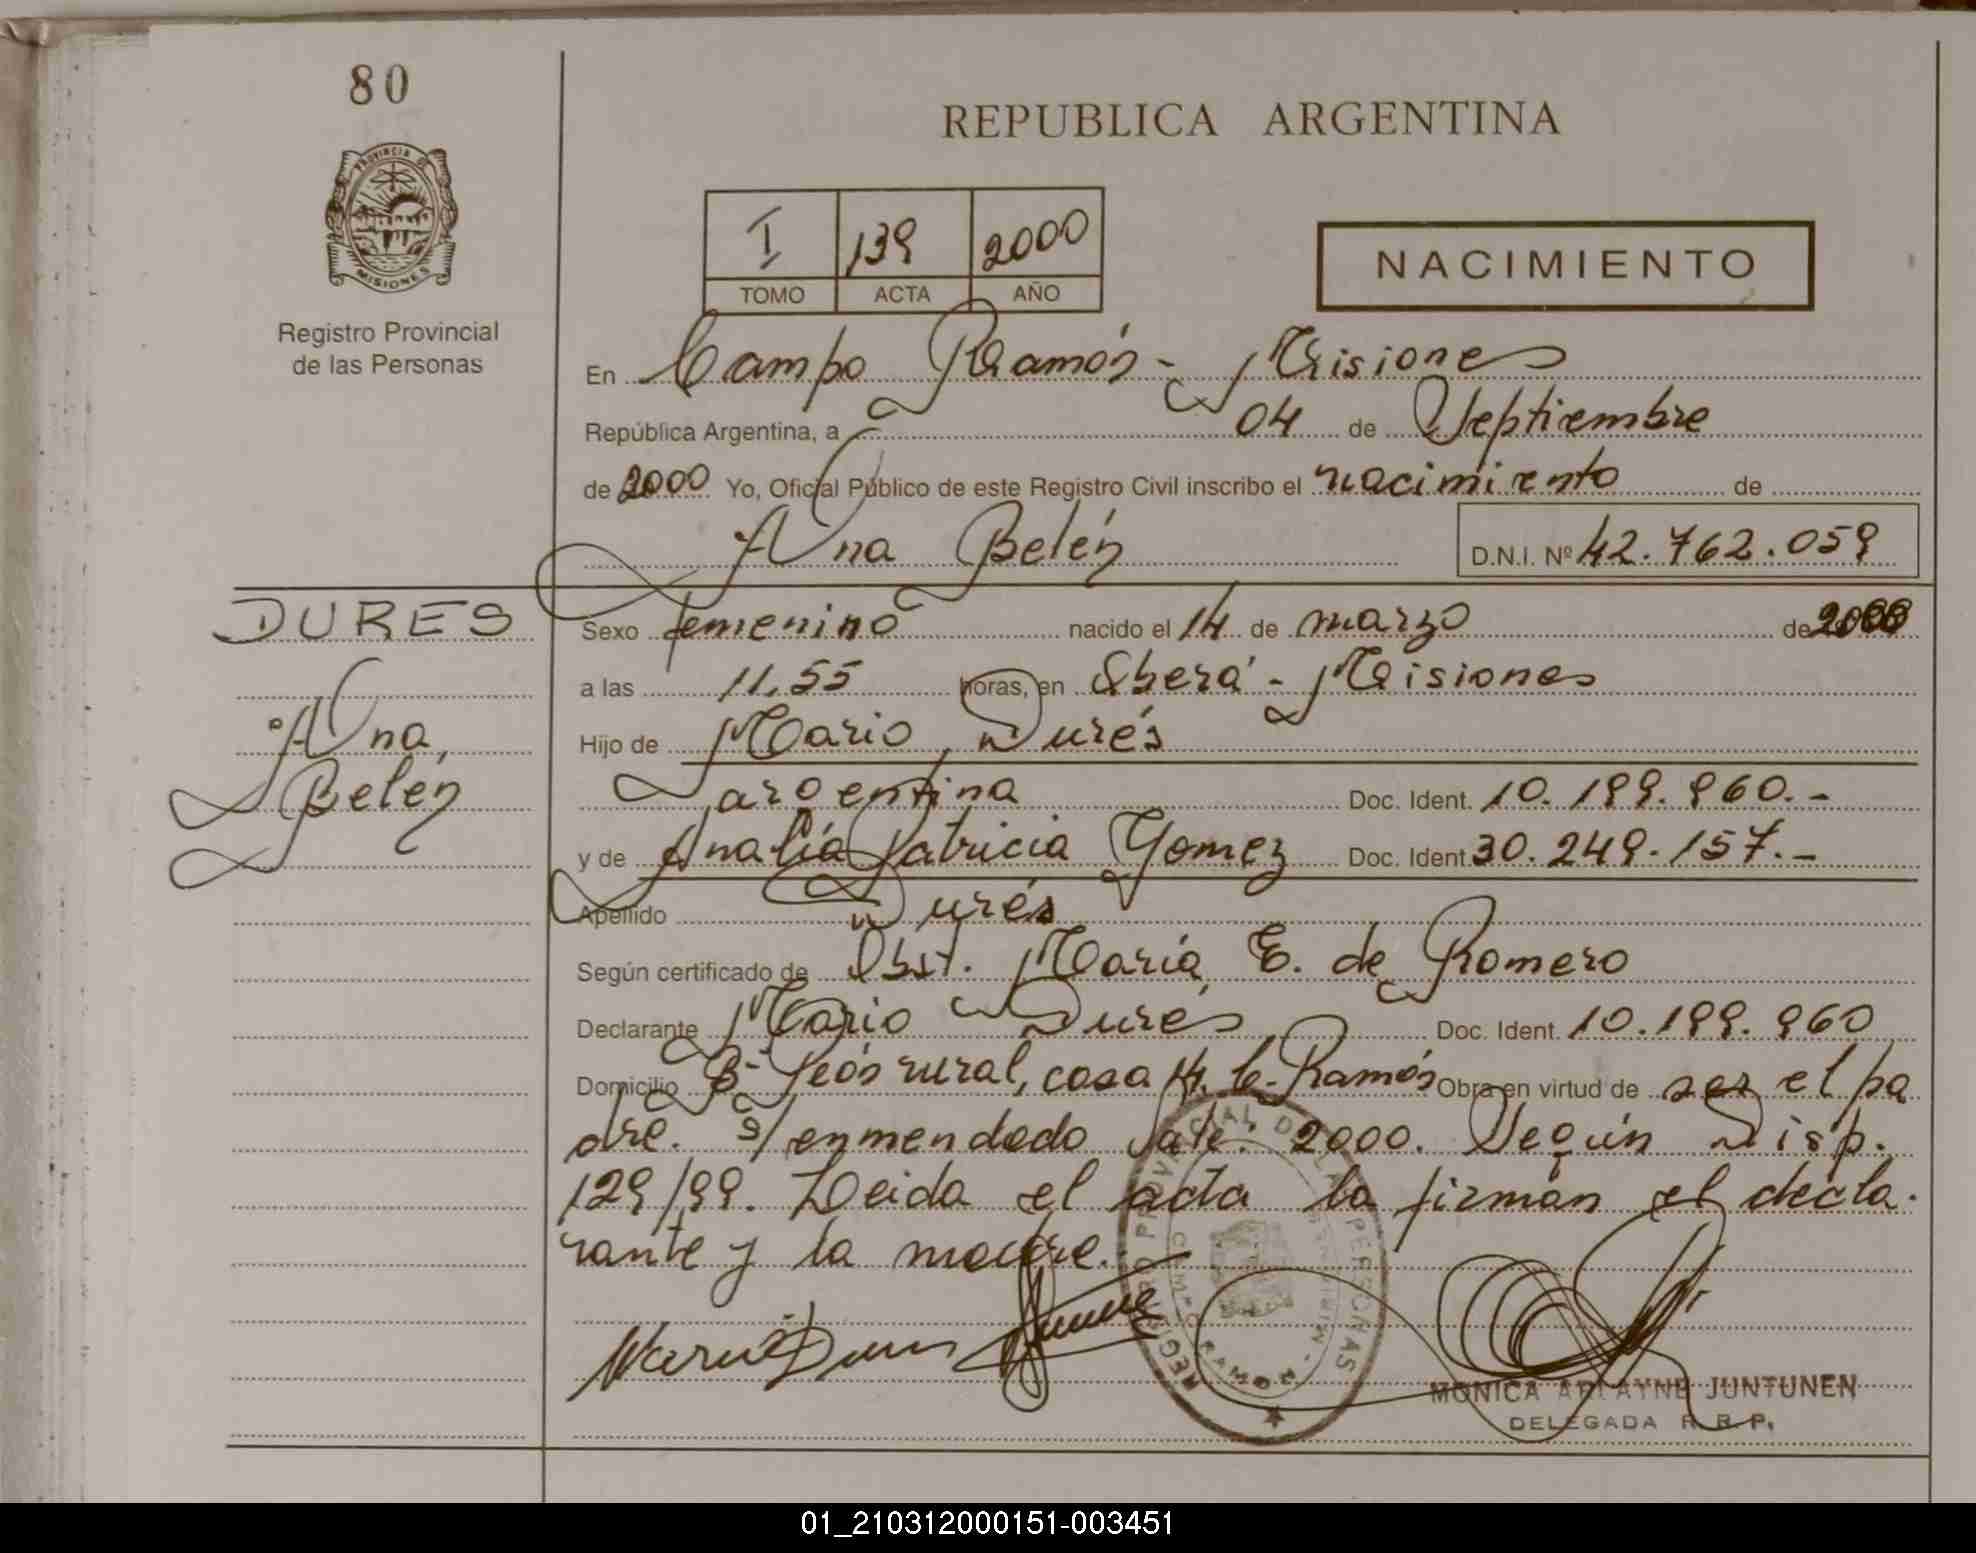 80
REPUBLICA ARGENTINA
PROVINCIA DE
MISIONES
Registro Provincial
de las Personas
I 139 2000
TOMO ACTA AÑO
NACIMIENTO
En Campo Ramón - Misiones
República Argentina, a 04 de Septiembre
de 2000 Yo, Oficial Público de este Registro Civil inscribo el nacimiento de
Ana Belén D.N.I. Nº 42.762.059
DURES
Ana
Belén
Sexo femenino nacido el 14 de marzo de 2000
a las 11,55 horas, en Oberá - Misiones
Hijo de Mario Durés
argentina Doc. Ident. 10.199.960.-
y de Analía Patricia Gomez Doc. Ident. 30.249.157.-
Apellido Durés
Según certificado de Obst. María E. de Romero
Declarante Mario Durés Doc. Ident. 10.199.960
Domicilio rural, casa 14. C. Ramón Obra en virtud de ser el pa
dre. S/ enmendado vale: 2000. Según Disp.
129/99. Leida el acta la firman el decla-
rante y la madre.
REGISTRO PROVINCIAL DE LAS PERSONAS
CAMPO RAMON - MISIONES
MONICA ARLAYNE JUNTUNEN
DELEGADA R. R. P.
01_210312000151-003451